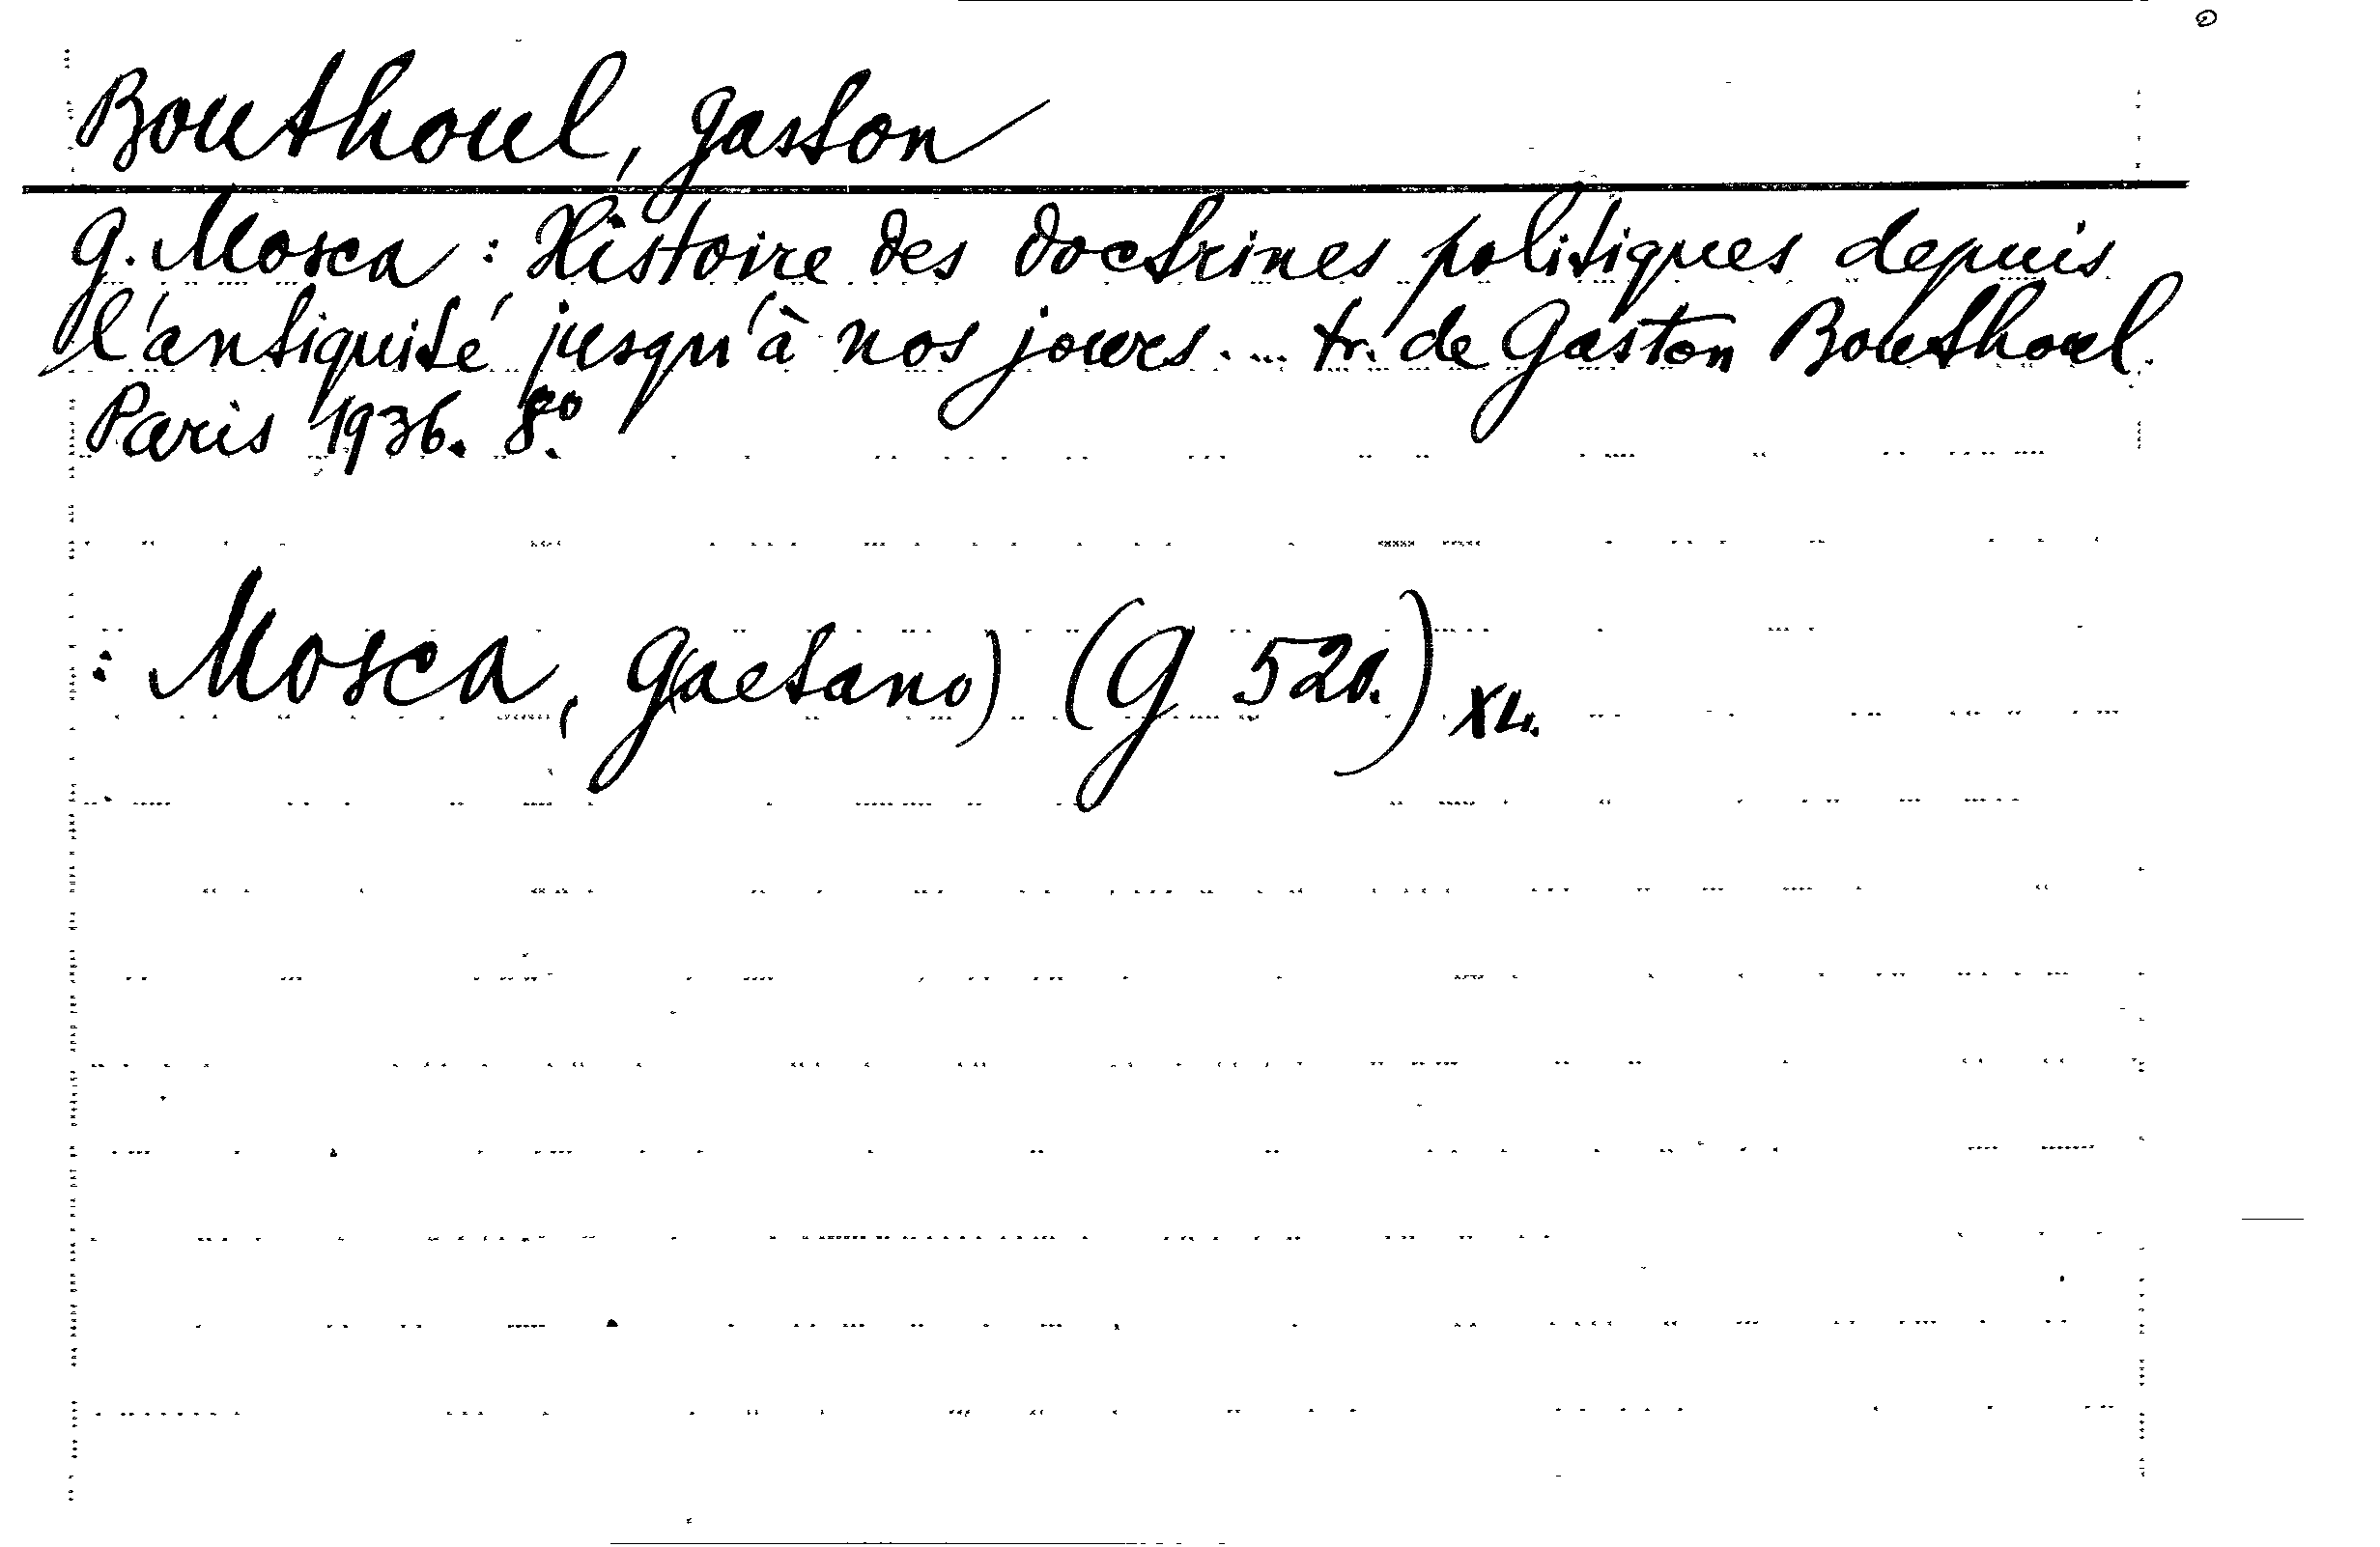 Bouthoul, Gaston
G. Mosca : Histoire des doctrines politiques depuis
l'antiquité jusqu'à nos jours. ... tr. de Gaston Bouthoul.
Paris 1936. 8º.
: Mosca, G(aetano) (G 520.) XL.